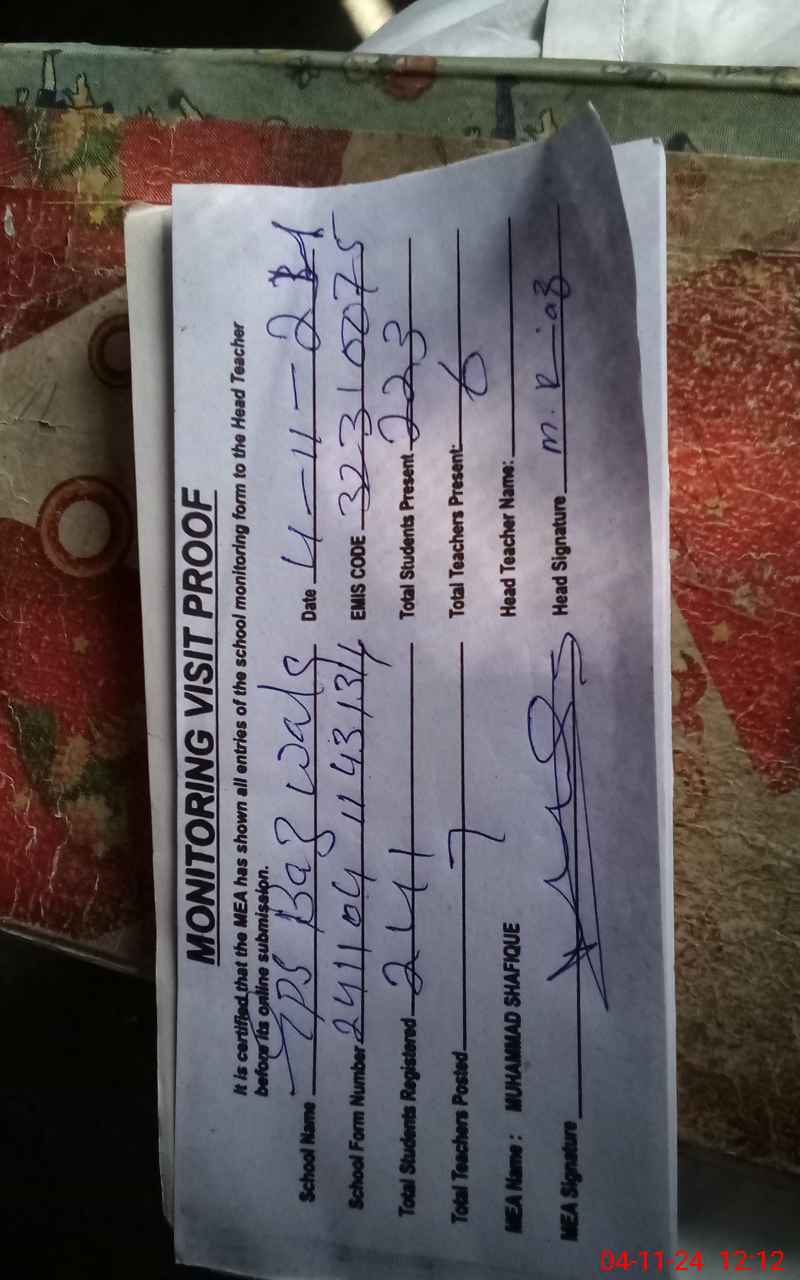 MONITORING VISIT PROOF
It is certified that the MEA has shown all entries of the school monitoring form to the Head Teacher
before its online submission.
School Name Date 4-11-24
School Form Number EMIS CODE 32310075
Total Students Registered 241 Total Students Present 223
Total Teachers Posted 7 Total Teachers Present: 6
MEA Name : MUHAMMAD SHAFIQUE Head Teacher Name:
MEA Signature Head Signature M. Riaz
04-11-24 12:12